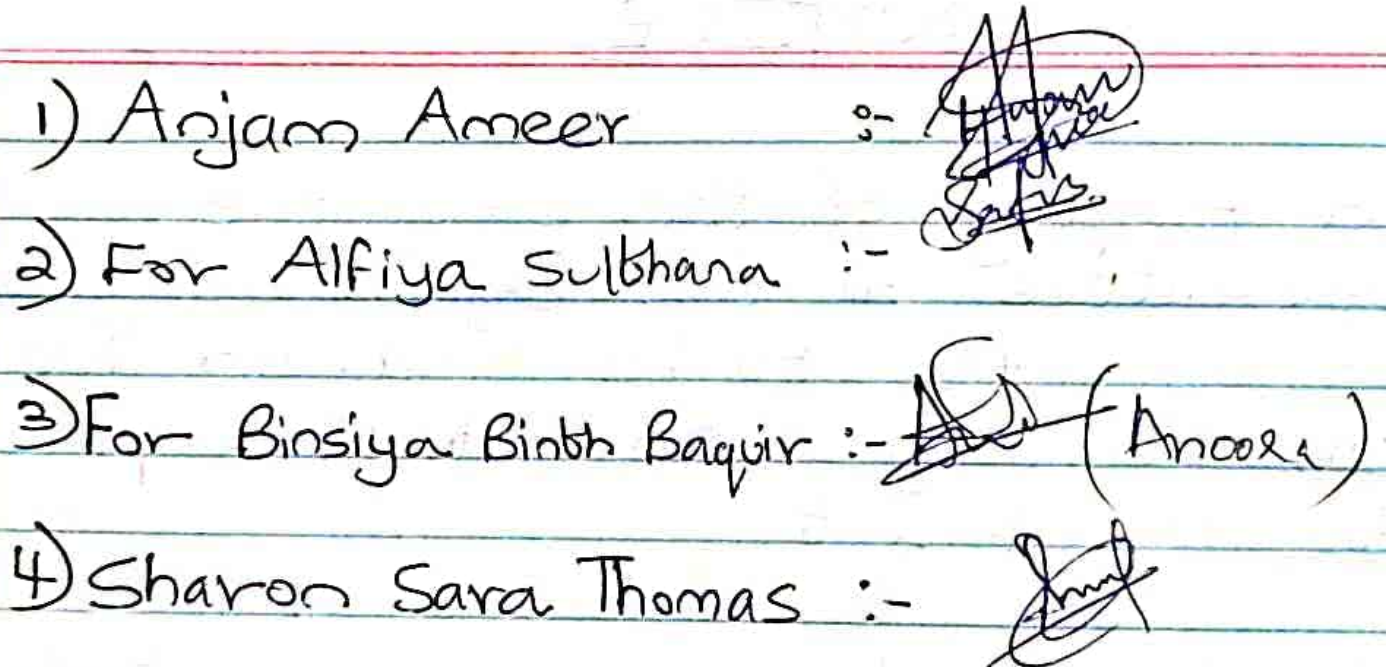 1) Anjam Ameer :-
2) For Alfiya Sulthana :-
3) For Binsiya Binth Baquir :- (Anoora)
4) Sharon Sara Thomas :-